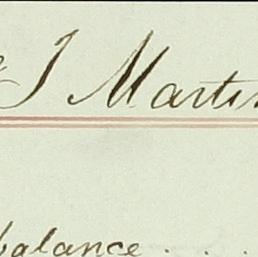 J Martin
balance . . .